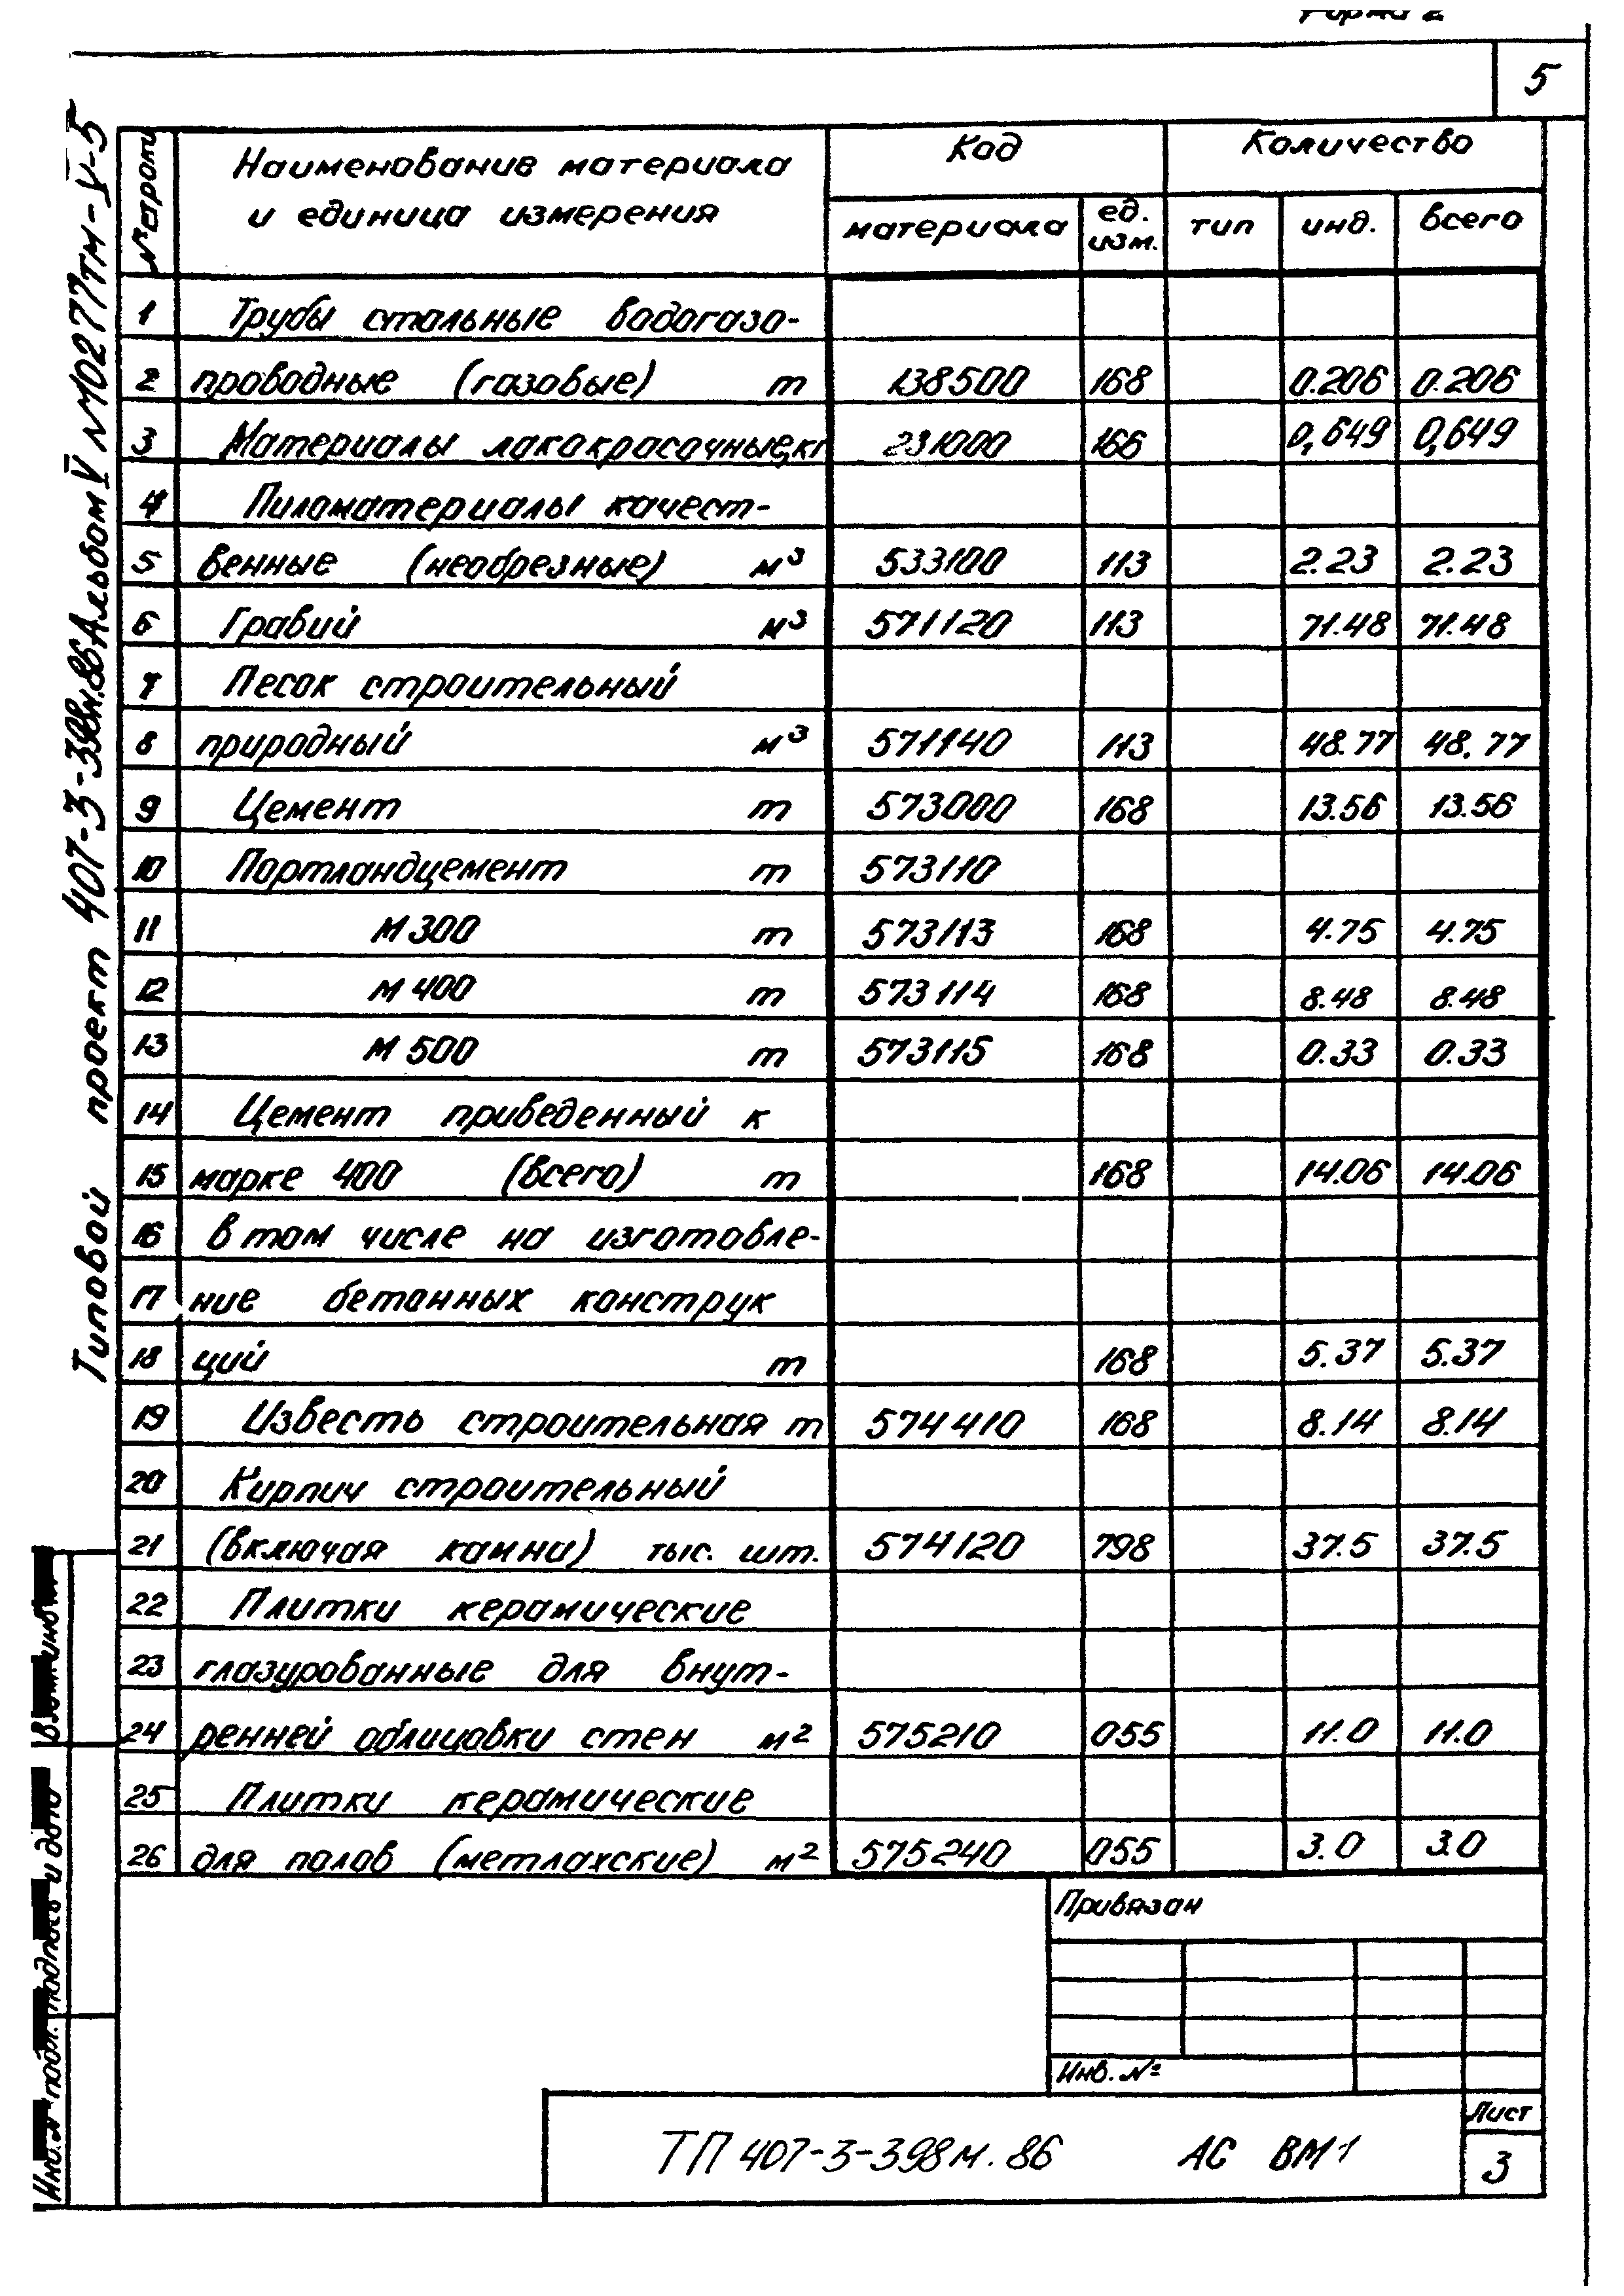 Форма 2
5
Типовой проект 407-3-398м.86 Альбом V №10277тм-V-5
№ строки
Наименование материала и единица измерения
Код
Количество
материала
ед. изм.
тип
инд.
всего
1 Трубы стальные водогазо-
2 проводные (газовые) т 138500 168 0.206 0.206
3 Материалы лакокрасочные,кг 231000 166 0,649 0,649
4 Пиломатериалы качест-
5 венные (необрезные) м³ 533100 113 2.23 2.23
6 Гравий м³ 571120 113 71.48 71.48
7 Песок строительный
8 природный м³ 571140 113 48.77 48.77
9 Цемент т 573000 168 13.56 13.56
10 Портландцемент т 573110
11 М 300 т 573113 168 4.75 4.75
12 М 400 т 573114 168 8.48 8.48
13 М 500 т 573115 168 0.33 0.33
14 Цемент приведенный к
15 марке 400 (всего) т 168 14.06 14.06
16 в том числе на изготовле-
17 ние бетонных конструк
18 ций т 168 5.37 5.37
19 Известь строительная т 574410 168 8.14 8.14
20 Кирпич строительный
21 (включая камни) тыс. шт. 574120 798 37.5 37.5
22 Плитки керамические
23 глазурованные для внут-
24 ренней облицовки стен м² 575210 055 11.0 11.0
25 Плитки керамические
26 для полов (метлахские) м² 575240 055 3.0 3.0
Взам. инв. №
Подпись и дата
Инв. № подл.
Привязан
Инв. №
ТП 407-3-398м.86 АС ВМ1
Лист
3